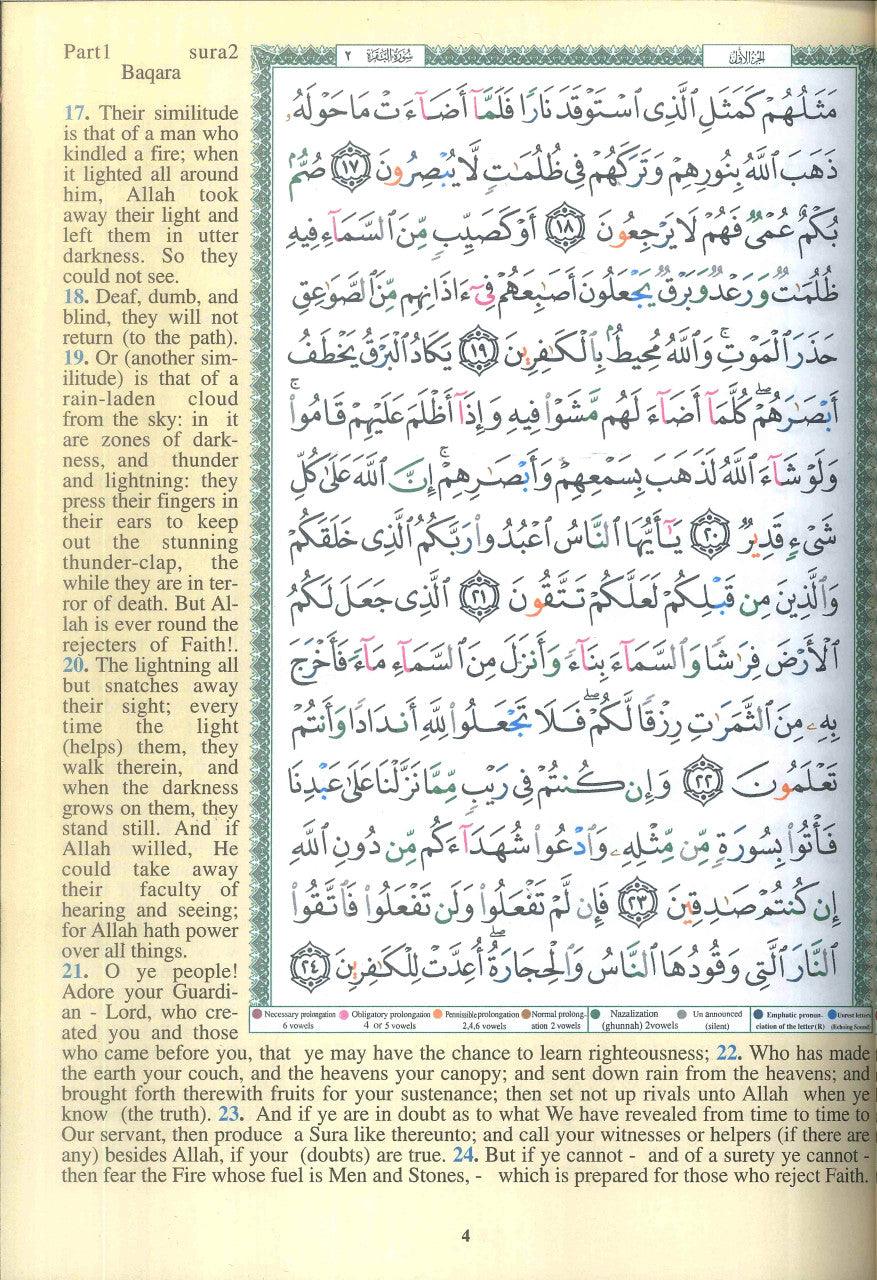 Part1 sura2
Baqara
سورة البقرة ٢
الجزء الأول
17. Their similitude
is that of a man who
kindled a fire; when
it lighted all around
him, Allah took
away their light and
left them in utter
darkness. So they
could not see.
18. Deaf, dumb, and
blind, they will not
return (to the path).
19. Or (another sim-
ilitude) is that of a
rain-laden cloud
from the sky: in it
are zones of dark-
ness, and thunder
and lightning: they
press their fingers in
their ears to keep
out the stunning
thunder-clap, the
while they are in ter-
ror of death. But Al-
lah is ever round the
rejecters of Faith!.
20. The lightning all
but snatches away
their sight; every
time the light
(helps) them, they
walk therein, and
when the darkness
grows on them, they
stand still. And if
Allah willed, He
could take away
their faculty of
hearing and seeing;
for Allah hath power
over all things.
21. O ye people!
Adore your Guardi-
an - Lord, who cre-
ated you and those
who came before you, that ye may have the chance to learn righteousness; 22. Who has made
the earth your couch, and the heavens your canopy; and sent down rain from the heavens; and
brought forth therewith fruits for your sustenance; then set not up rivals unto Allah when ye
know (the truth). 23. And if ye are in doubt as to what We have revealed from time to time to
Our servant, then produce a Sura like thereunto; and call your witnesses or helpers (if there are
any) besides Allah, if your (doubts) are true. 24. But if ye cannot - and of a surety ye cannot -
then fear the Fire whose fuel is Men and Stones, - which is prepared for those who reject Faith.
مَثَلُهُمْ كَمَثَلِ ٱلَّذِى ٱسْتَوْقَدَ نَارًا فَلَمَّآ أَضَآءَتْ مَا حَوْلَهُۥ
ذَهَبَ ٱللَّهُ بِنُورِهِمْ وَتَرَكَهُمْ فِى ظُلُمَٰتٍ لَّا يُبْصِرُونَ ١٧ صُمٌّۢ
بُكْمٌ عُمْىٌ فَهُمْ لَا يَرْجِعُونَ ١٨ أَوْ كَصَيِّبٍ مِّنَ ٱلسَّمَآءِ فِيهِ
ظُلُمَٰتٌ وَرَعْدٌ وَبَرْقٌ يَجْعَلُونَ أَصَٰبِعَهُمْ فِىٓ ءَاذَانِهِم مِّنَ ٱلصَّوَٰعِقِ
حَذَرَ ٱلْمَوْتِ ۚ وَٱللَّهُ مُحِيطٌۢ بِٱلْكَٰفِرِينَ ١٩ يَكَادُ ٱلْبَرْقُ يَخْطَفُ
أَبْصَٰرَهُمْ ۖ كُلَّمَآ أَضَآءَ لَهُم مَّشَوْا۟ فِيهِ وَإِذَآ أَظْلَمَ عَلَيْهِمْ قَامُوا۟ ۚ
وَلَوْ شَآءَ ٱللَّهُ لَذَهَبَ بِسَمْعِهِمْ وَأَبْصَٰرِهِمْ ۚ إِنَّ ٱللَّهَ عَلَىٰ كُلِّ
شَىْءٍ قَدِيرٌ ٢٠ يَٰٓأَيُّهَا ٱلنَّاسُ ٱعْبُدُوا۟ رَبَّكُمُ ٱلَّذِى خَلَقَكُمْ
وَٱلَّذِينَ مِن قَبْلِكُمْ لَعَلَّكُمْ تَتَّقُونَ ٢١ ٱلَّذِى جَعَلَ لَكُمُ
ٱلْأَرْضَ فِرَٰشًا وَٱلسَّمَآءَ بِنَآءً وَأَنزَلَ مِنَ ٱلسَّمَآءِ مَآءً فَأَخْرَجَ
بِهِۦ مِنَ ٱلثَّمَرَٰتِ رِزْقًا لَّكُمْ ۖ فَلَا تَجْعَلُوا۟ لِلَّهِ أَندَادًا وَأَنتُمْ
تَعْلَمُونَ ٢٢ وَإِن كُنتُمْ فِى رَيْبٍ مِّمَّا نَزَّلْنَا عَلَىٰ عَبْدِنَا
فَأْتُوا۟ بِسُورَةٍ مِّن مِّثْلِهِۦ وَٱدْعُوا۟ شُهَدَآءَكُم مِّن دُونِ ٱللَّهِ
إِن كُنتُمْ صَٰدِقِينَ ٢٣ فَإِن لَّمْ تَفْعَلُوا۟ وَلَن تَفْعَلُوا۟ فَٱتَّقُوا۟
ٱلنَّارَ ٱلَّتِى وَقُودُهَا ٱلنَّاسُ وَٱلْحِجَارَةُ ۖ أُعِدَّتْ لِلْكَٰفِرِينَ ٢٤
Necessary prolongation 6 vowels
Obligatory prolongation 4 or 5 vowels
Permissible prolongation 2,4,6 vowels
Normal prolong-ation 2 vowels
Nazalization (ghunnah) 2vowels
Un announced (silent)
Emphatic pronun-ciation of the letter (R)
Unrest letters (Echoing Sound)
4